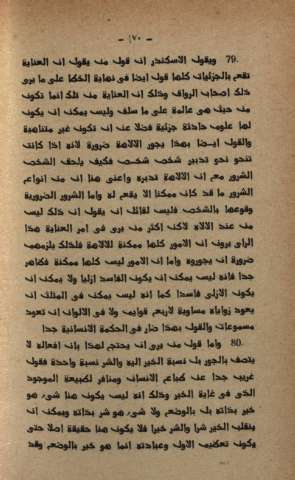 - ٧٠ -
79. ويقول الاسكندر ان قول من يقول ان العناية
تقع بالجزئيات كلها قول ايضا فى نهاية الخطا على ما يرى
ذلك اصحاب الرواق وذلك ان العناية من تلك انما تكون
من حيث هى عالمة على ما سلف وليس يمكن ان يكون
لها علوم حادثة جزئية فضلا عن ان تكون غير متناهية
والقول ايضا بهذا يجور الالاهة ضرورة لانه اذا كانت
تنحو نحو تدبير شخص شخص فكيف يلحف الشخص
الشرور مع ان الالاهة تدبره واعنى هنا ان من انواع
الشرور ما قد كان ممكنا الا يقع له واما الشرور الضرورية
وقوعها بالشخص فليس لقائل ان يقول ان ذلك ليس
من عند الالاه لاكن اكثر من يرى فى امر العناية هذا
الراى يرون ان الامور كلها ممكنة للالاهة فلذلك يلزمهم
ضرورة ان يجوروه واما ان الامور ليس كلها ممكنة فظاهر
جدا فانه ليس يمكن ان يكون الفاسد ازليا ولا يمكن ان
يكون الازلى فاسدا كما انه ليس يمكن فى المثلث ان
يعود زواياه مساوية لاربع قوايم ولا فى الالوان ان تعود
مسموعات والقول بهذا ضار فى الحكمة الانسانية جدا
80. واما قول من يرى ان يحتج لهذا بان افعاله لا
يتصف بالجور بل نسبة الخير اليه والشر نسبة واحدة فقول
غريب جدا عن طباع الانسان ومنافر لطبيعة الموجود
الذى فى غاية الخير وذلك انه ليس يكون هنا شىء هو
خير بذاته بل بالوضع ولا شىء هو شر بذاته ويمكن ان
ينقلب الخير شرا والشر خيرا فلا يكون هنا حقيقة اصلا حتى
يكون تعظيم الاول وعبادته انما هو خير بالوضع وقد